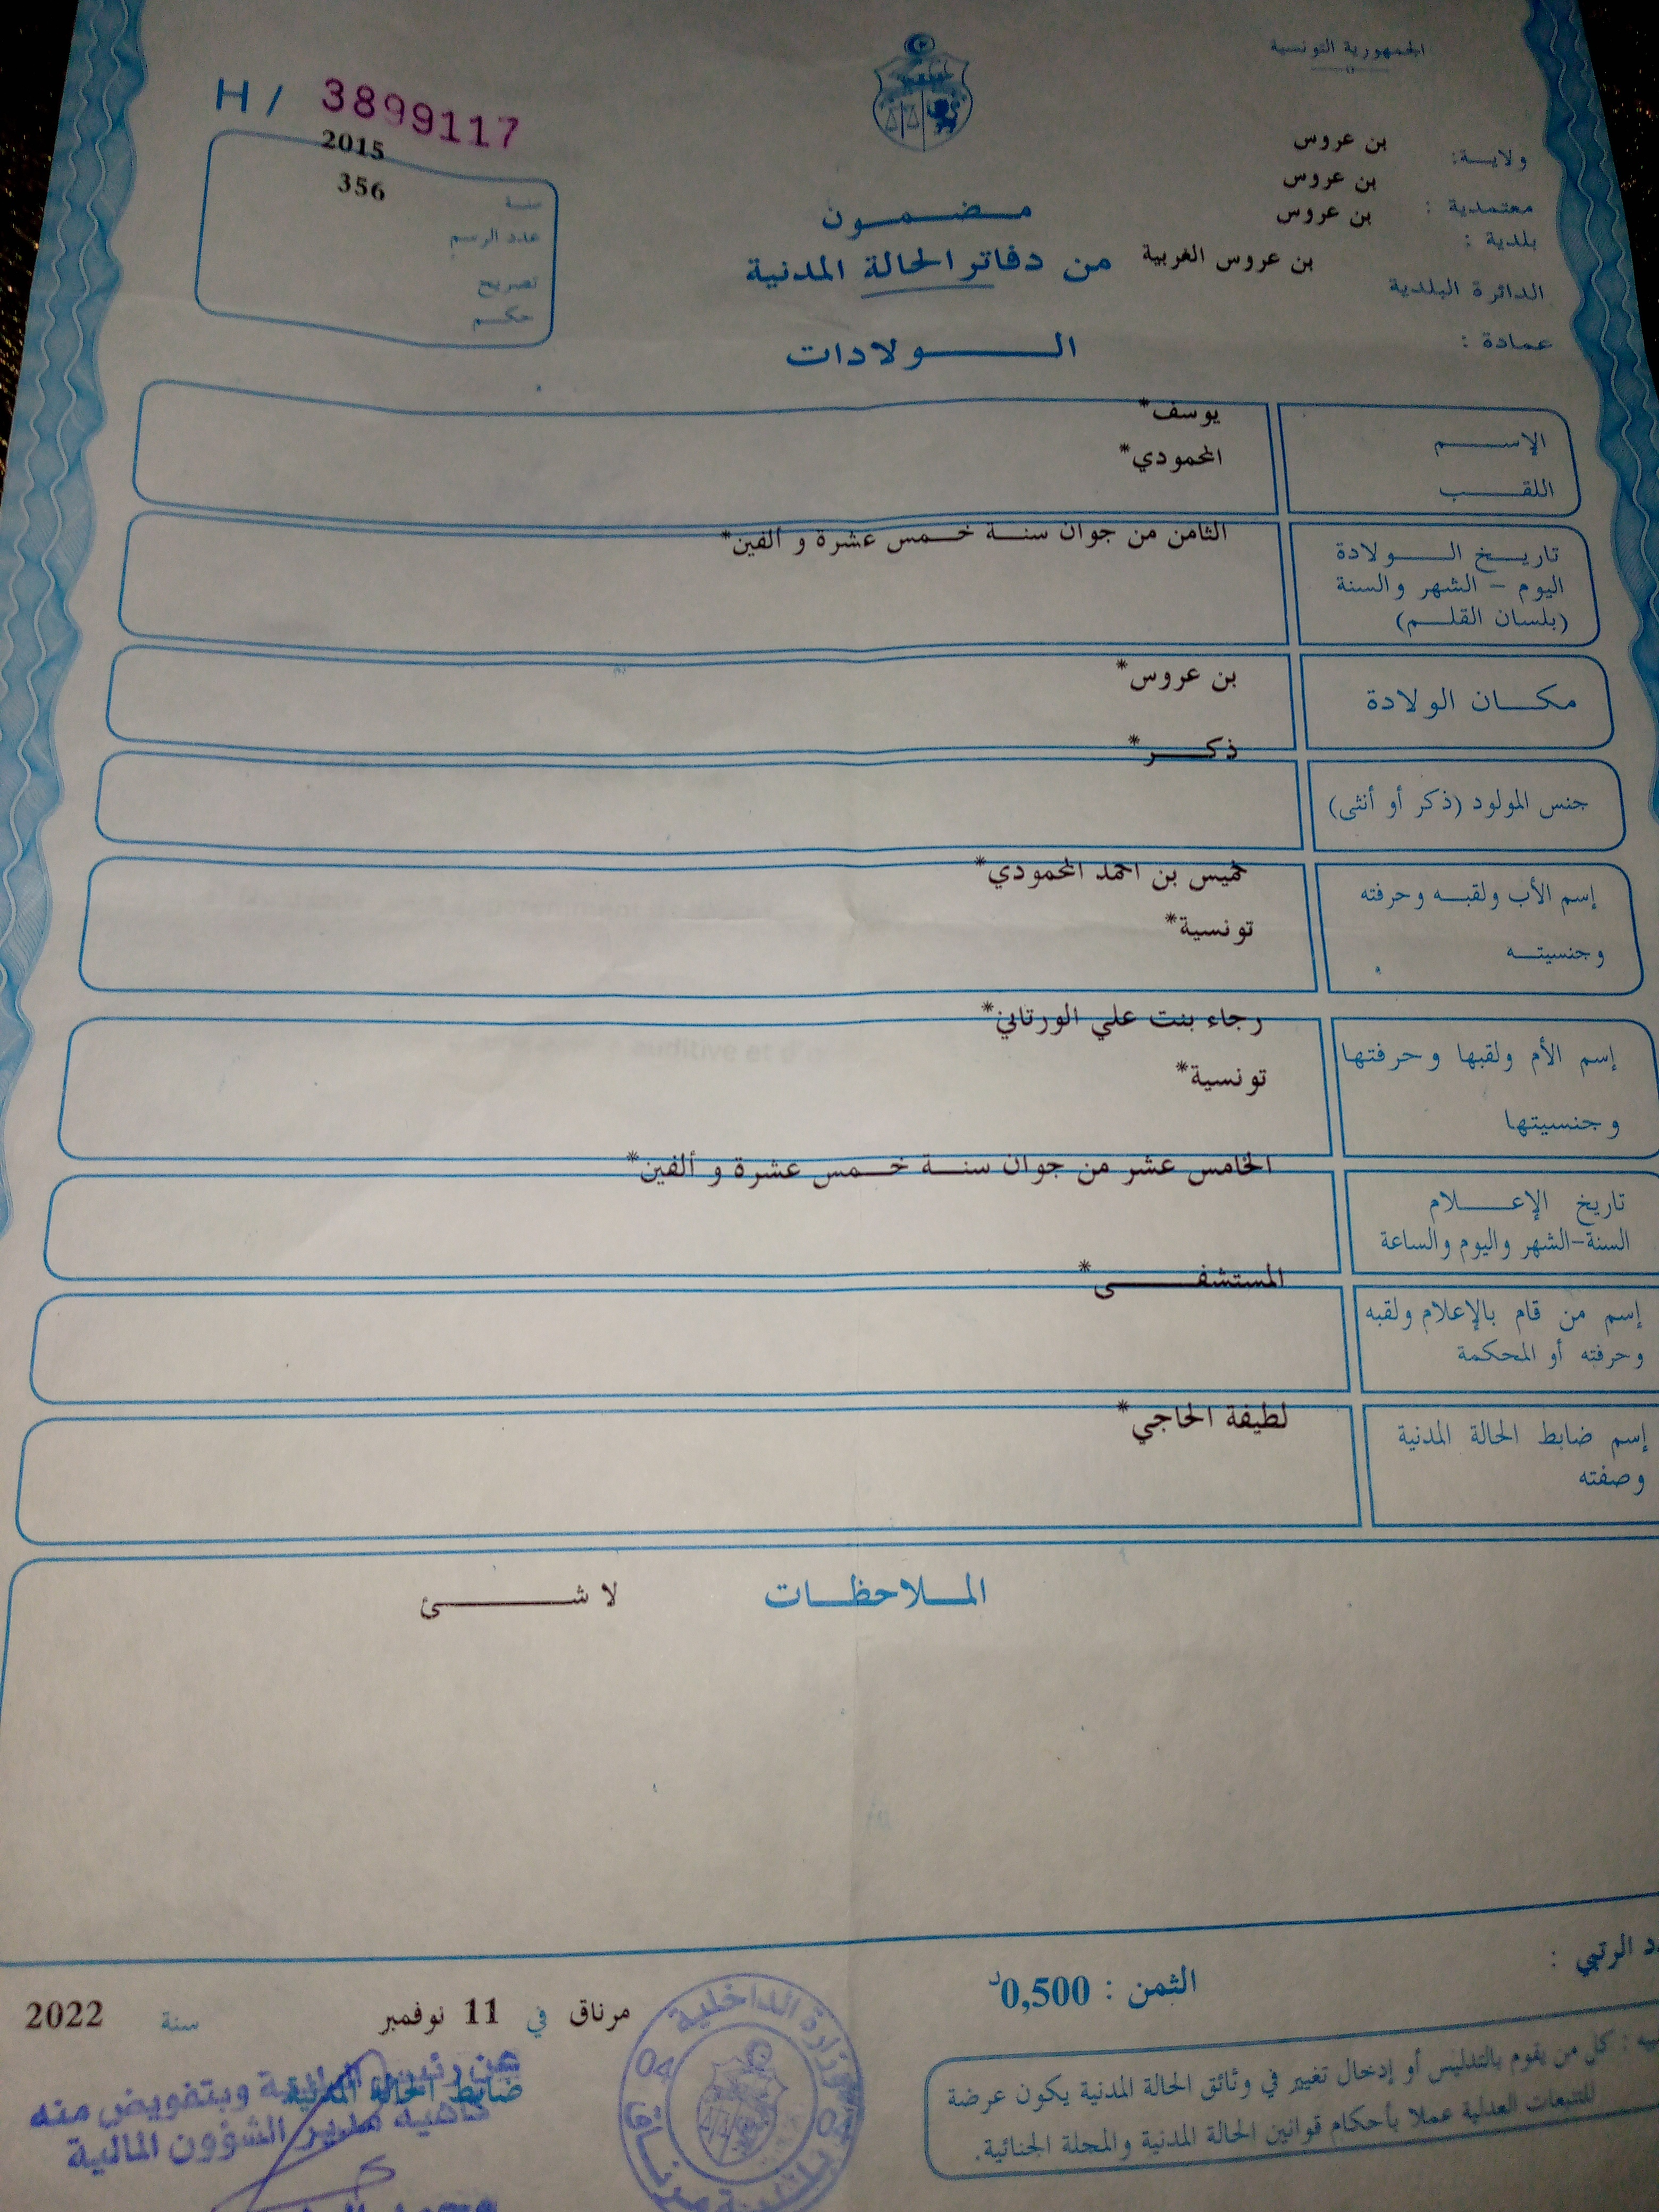 الجمهورية التونسية
H / 3899117
ولاية: بن عروس
معتمدية : بن عروس
بلدية : بن عروس
الدائرة البلدية بن عروس الغربية
عمادة :
سنة 2015
عدد الرسم 356
تصريح
حكم
مضمون
من دفاتر الحالة المدنية
الولادات
الإسم يوسف*
اللقب المحمودي*
تاريخ الولادة الثامن من جوان سنة خمس عشرة و ألفين*
اليوم - الشهر والسنة
(بلسان القلم)
مكان الولادة بن عروس*
جنس المولود (ذكر أو أنثى) ذكر*
إسم الأب ولقبه وحرفته خميس بن احمد المحمودي*
وجنسيته تونسية*
إسم الأم ولقبها وحرفتها رجاء بنت علي الورتاني*
وجنسيتها تونسية*
تاريخ الإعلام الخامس عشر من جوان سنة خمس عشرة و ألفين*
السنة-الشهر واليوم والساعة
إسم من قام بالإعلام ولقبه المستشفى*
وحرفته أو المحكمة
إسم ضابط الحالة المدنية لطيفة الحاجي*
وصفته
الملاحظات لا شئ
الرتبي :
الثمن : 0,500د
مرناق في 11 نوفمبر سنة 2022
ضابط الحالة المدنية
عن رئيس البلدية وبتفويض منه
كاهية مدير الشؤون المالية
وزارة الداخلية
04
بلدية مرناق
كل من يقوم بالتدليس أو إدخال تغيير في وثائق الحالة المدنية يكون عرضة
للتتبعات العدلية عملا بأحكام قوانين الحالة المدنية والمجلة الجنائية.